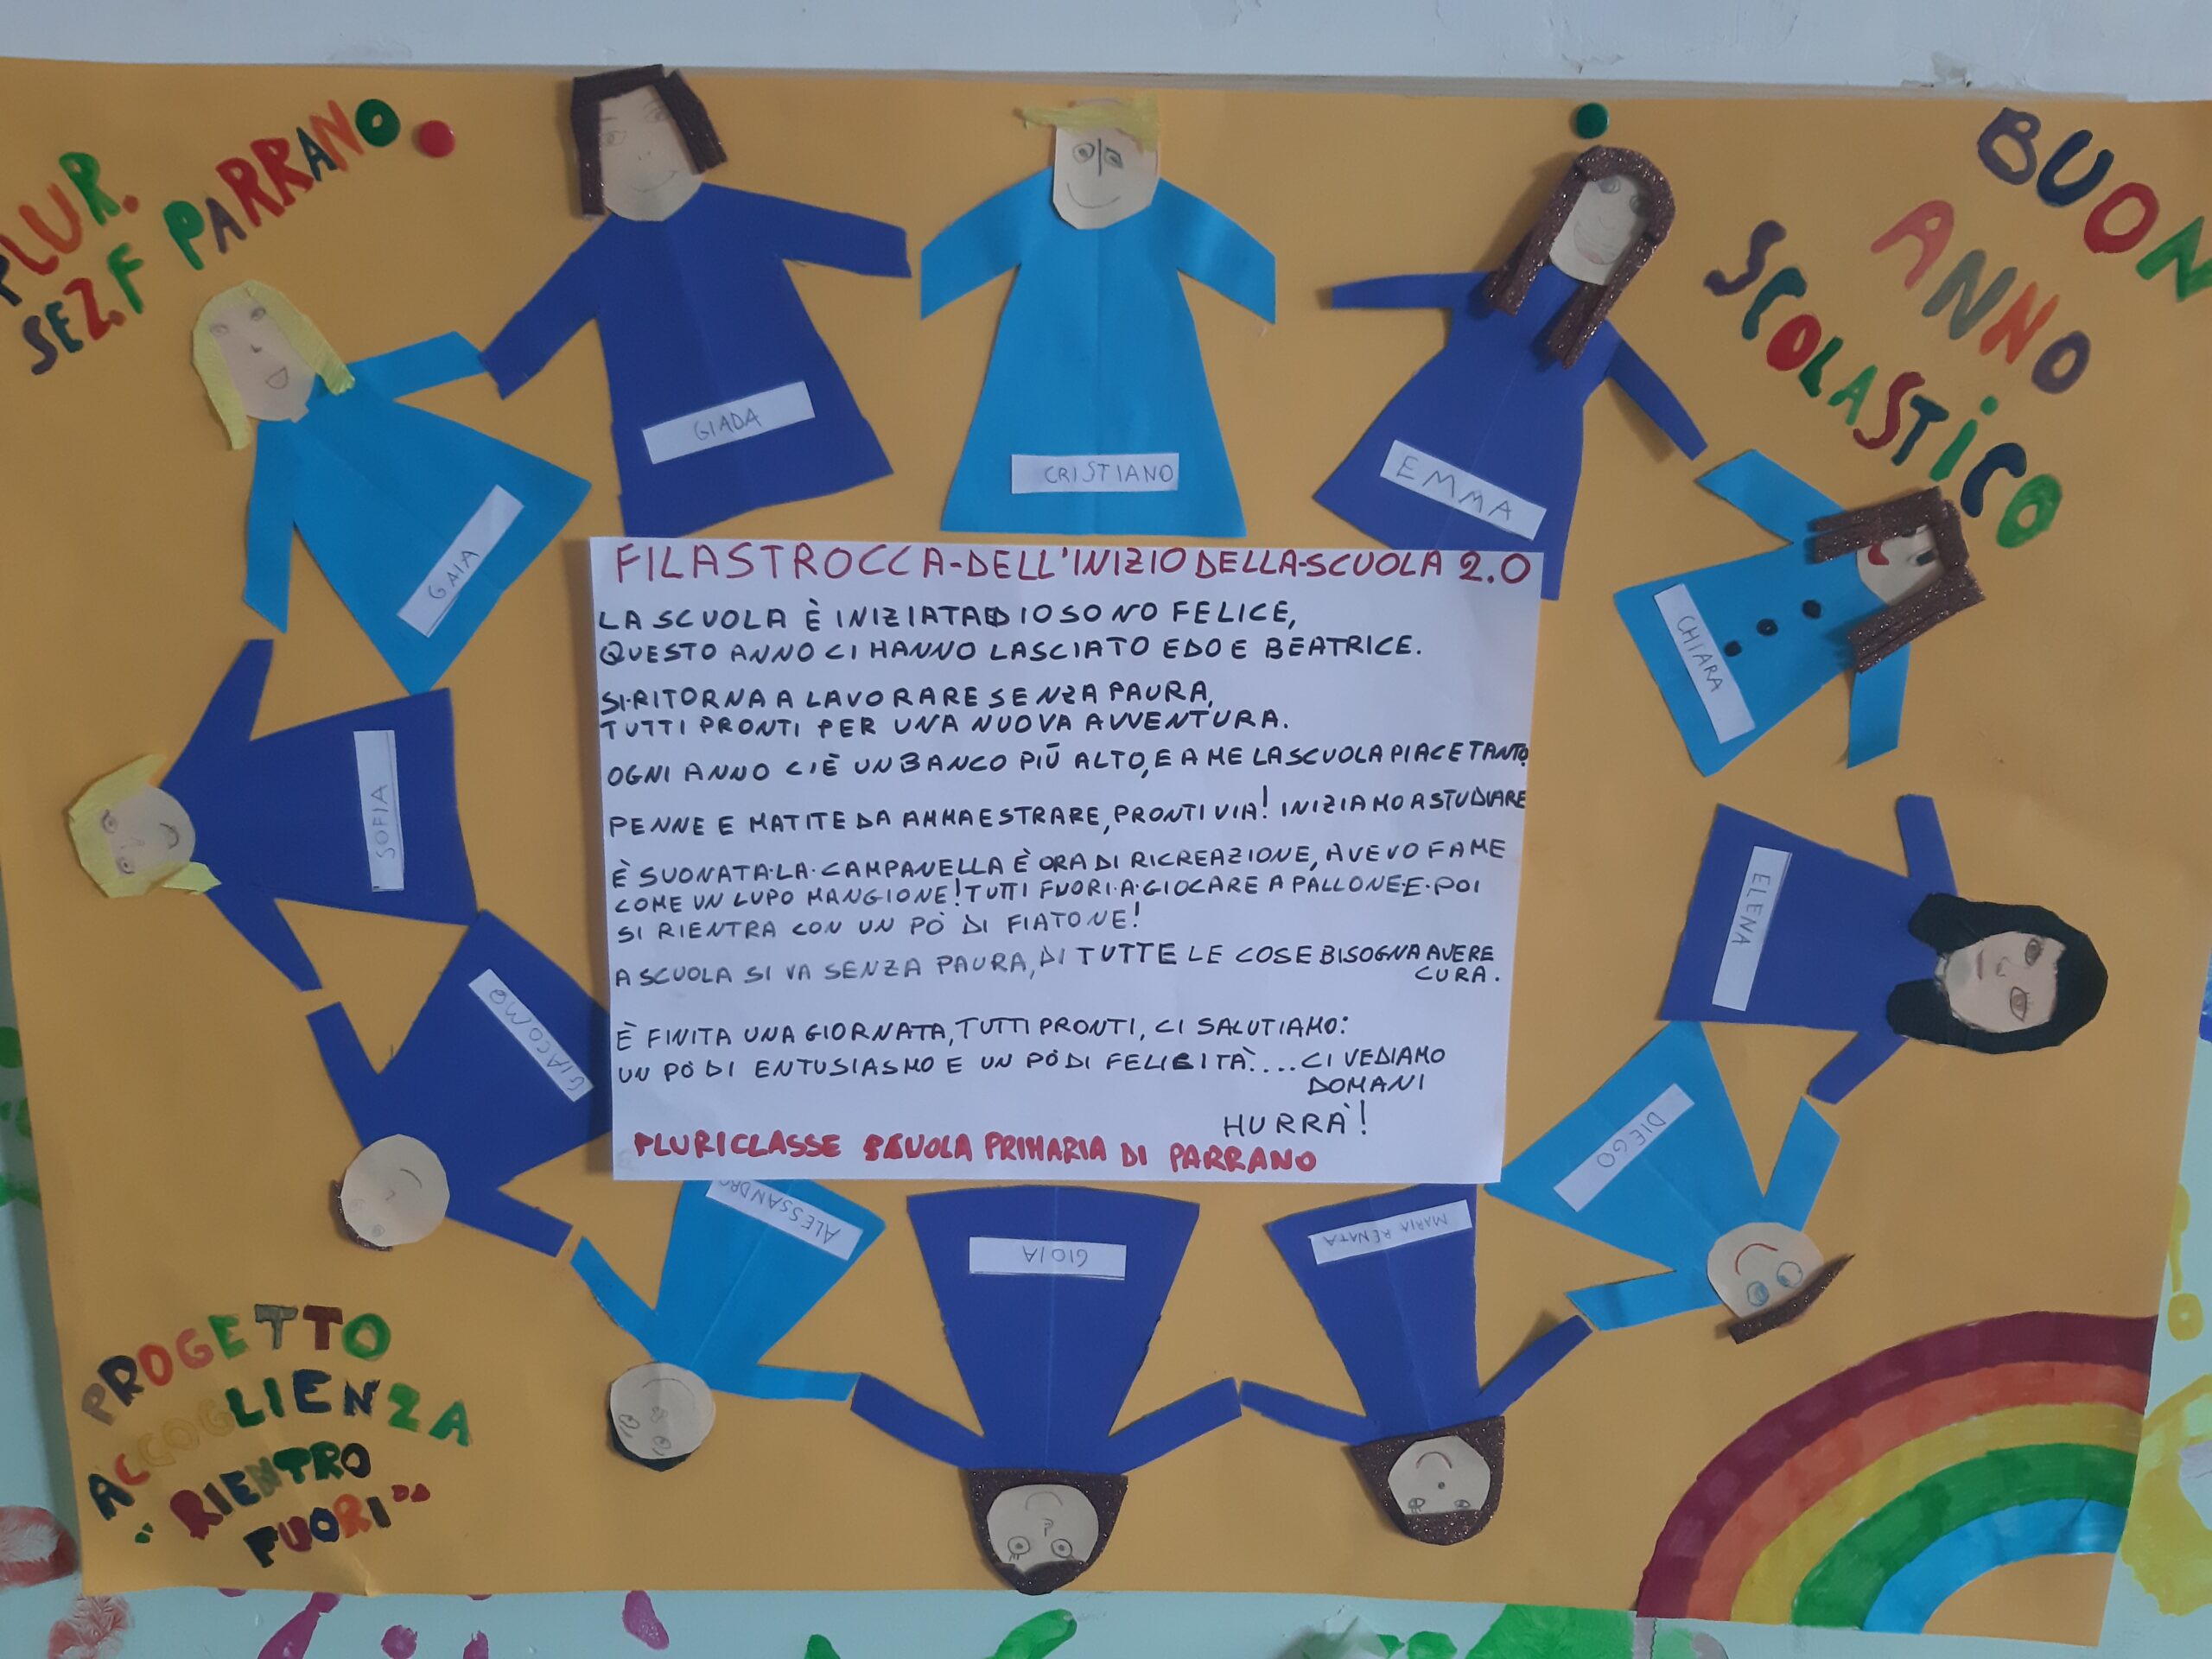 PLUR.
SEZ.F PARRANO.
BUON
ANNO
SCOLASTICO
GIADA
CRISTIANO
EMMA
GAIA
CHIARA
SOFIA
ELENA
GIACOMO
DIEGO
ALESSANDRO
GIOIA
MARIA RENATA
FILASTROCCA-DELL'INIZIO DELLA-SCUOLA 2.0
LA SCUOLA È INIZIATA ED IO SONO FELICE,
QUESTO ANNO CI HANNO LASCIATO EDO E BEATRICE.
SI·RITORNA A LAVORARE SENZA PAURA,
TUTTI PRONTI PER UNA NUOVA AVVENTURA.
OGNI ANNO C'È UN BANCO PIÙ ALTO, E A ME LA SCUOLA PIACE TANTO.
PENNE E MATITE DA AMMAESTRARE, PRONTI VIA! INIZIAMO A STUDIARE
È SUONATA·LA·CAMPANELLA È ORA DI RICREAZIONE, AVEVO FAME
COME UN LUPO MANGIONE! TUTTI FUORI·A·GIOCARE A PALLONE·E·POI
SI RIENTRA CON UN PÒ DI FIATONE!
A SCUOLA SI VA SENZA PAURA, DI TUTTE LE COSE BISOGNA AVERE
CURA.
È FINITA UNA GIORNATA, TUTTI PRONTI, CI SALUTIAMO:
UN PÒ DI ENTUSIASMO E UN PÒ DI FELICITÀ....CI VEDIAMO
DOMANI
HURRÀ!
PLURICLASSE SCUOLA PRIMARIA DI PARRANO
PROGETTO
ACCOGLIENZA
"RIENTRO
FUORI"